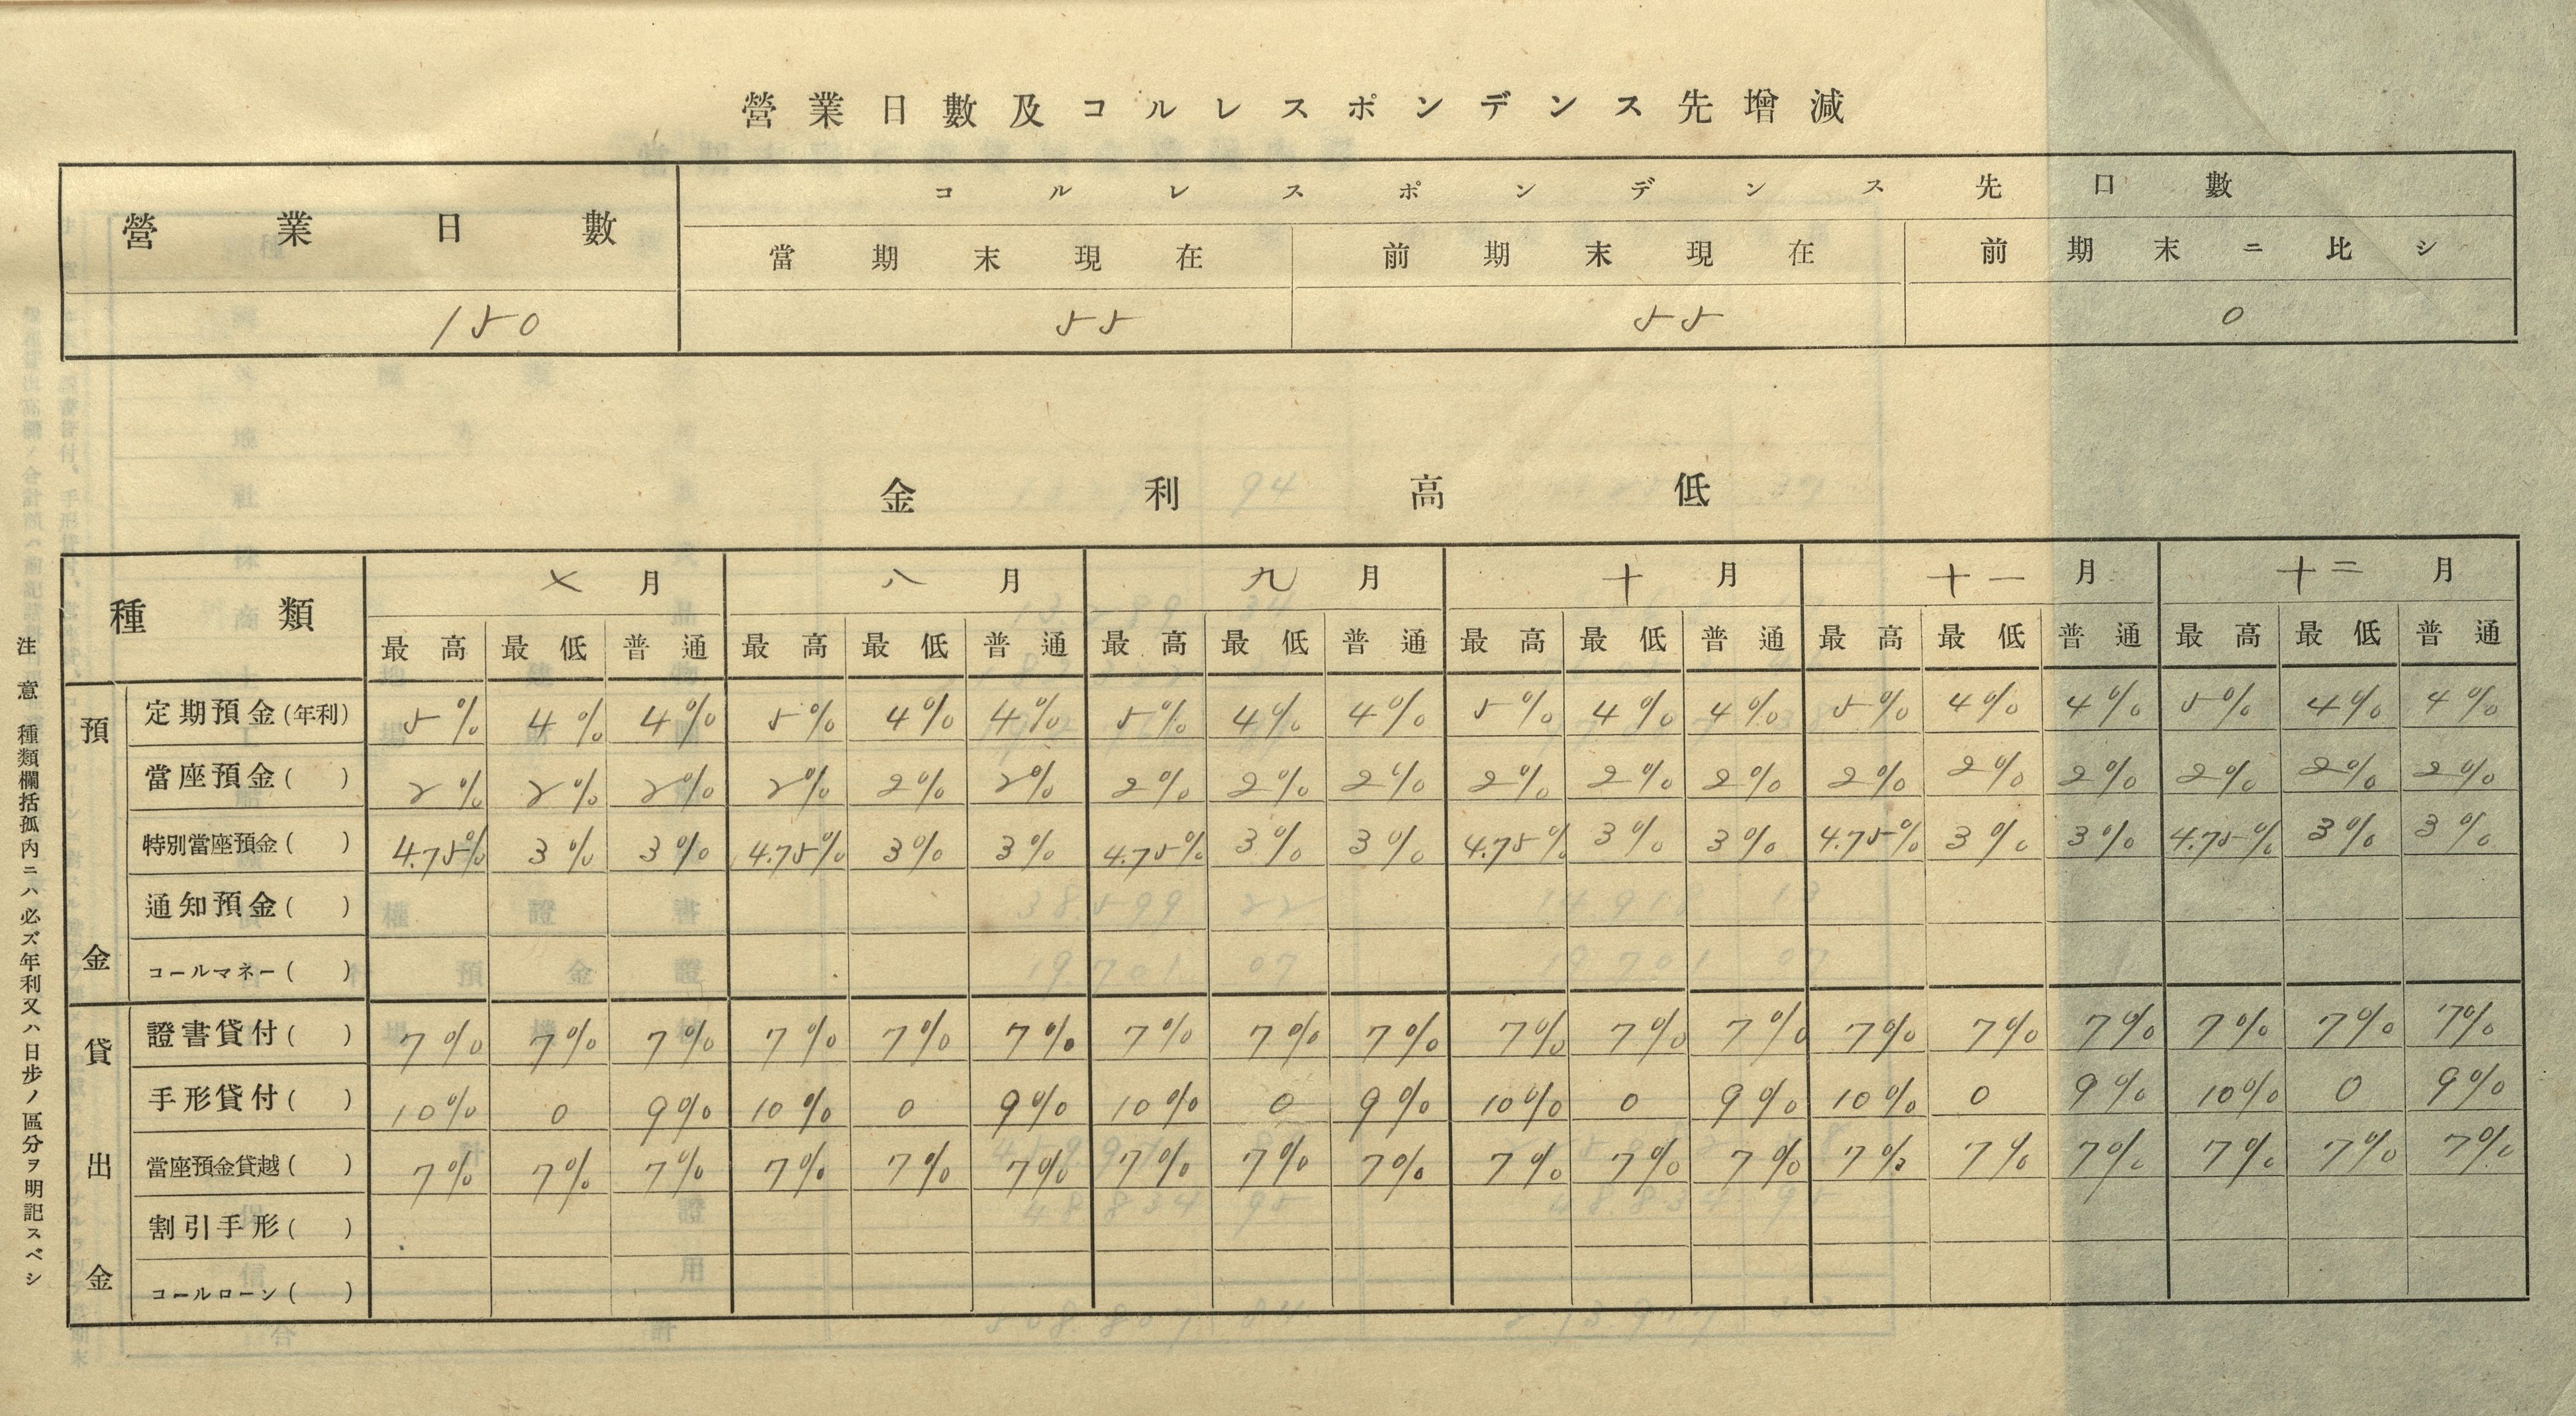 營業日數及コルレスポンデンス先增減
營業日數 コルレスポンデンス先口數
當期末現在 前期末現在 前期末ニ比シ
150 55 55 0
金利高低
種類 七月 八月 九月 十月 十一月 十二月
最高 最低 普通 最高 最低 普通 最高 最低 普通 最高 最低 普通 最高 最低 普通 最高 最低 普通
預金
定期預金(年利) 5% 4% 4% 5% 4% 4% 5% 4% 4% 5% 4% 4% 5% 4% 4% 5% 4% 4%
當座預金( ) 2% 2% 2% 2% 2% 2% 2% 2% 2% 2% 2% 2% 2% 2% 2% 2% 2% 2%
特別當座預金( ) 4.75% 3% 3% 4.75% 3% 3% 4.75% 3% 3% 4.75% 3% 3% 4.75% 3% 3% 4.75% 3% 3%
通知預金( )
コールマネー( )
貸出金
證書貸付( ) 7% 7% 7% 7% 7% 7% 7% 7% 7% 7% 7% 7% 7% 7% 7% 7% 7% 7%
手形貸付( ) 10% 0 9% 10% 0 9% 10% 0 9% 10% 0 9% 10% 0 9% 10% 0 9%
當座預金貸越( ) 7% 7% 7% 7% 7% 7% 7% 7% 7% 7% 7% 7% 7% 7% 7% 7% 7% 7%
割引手形( )
コールローン( )
注意 種類欄括孤內ニハ必ズ年利又ハ日步ノ區分ヲ明記スベシ